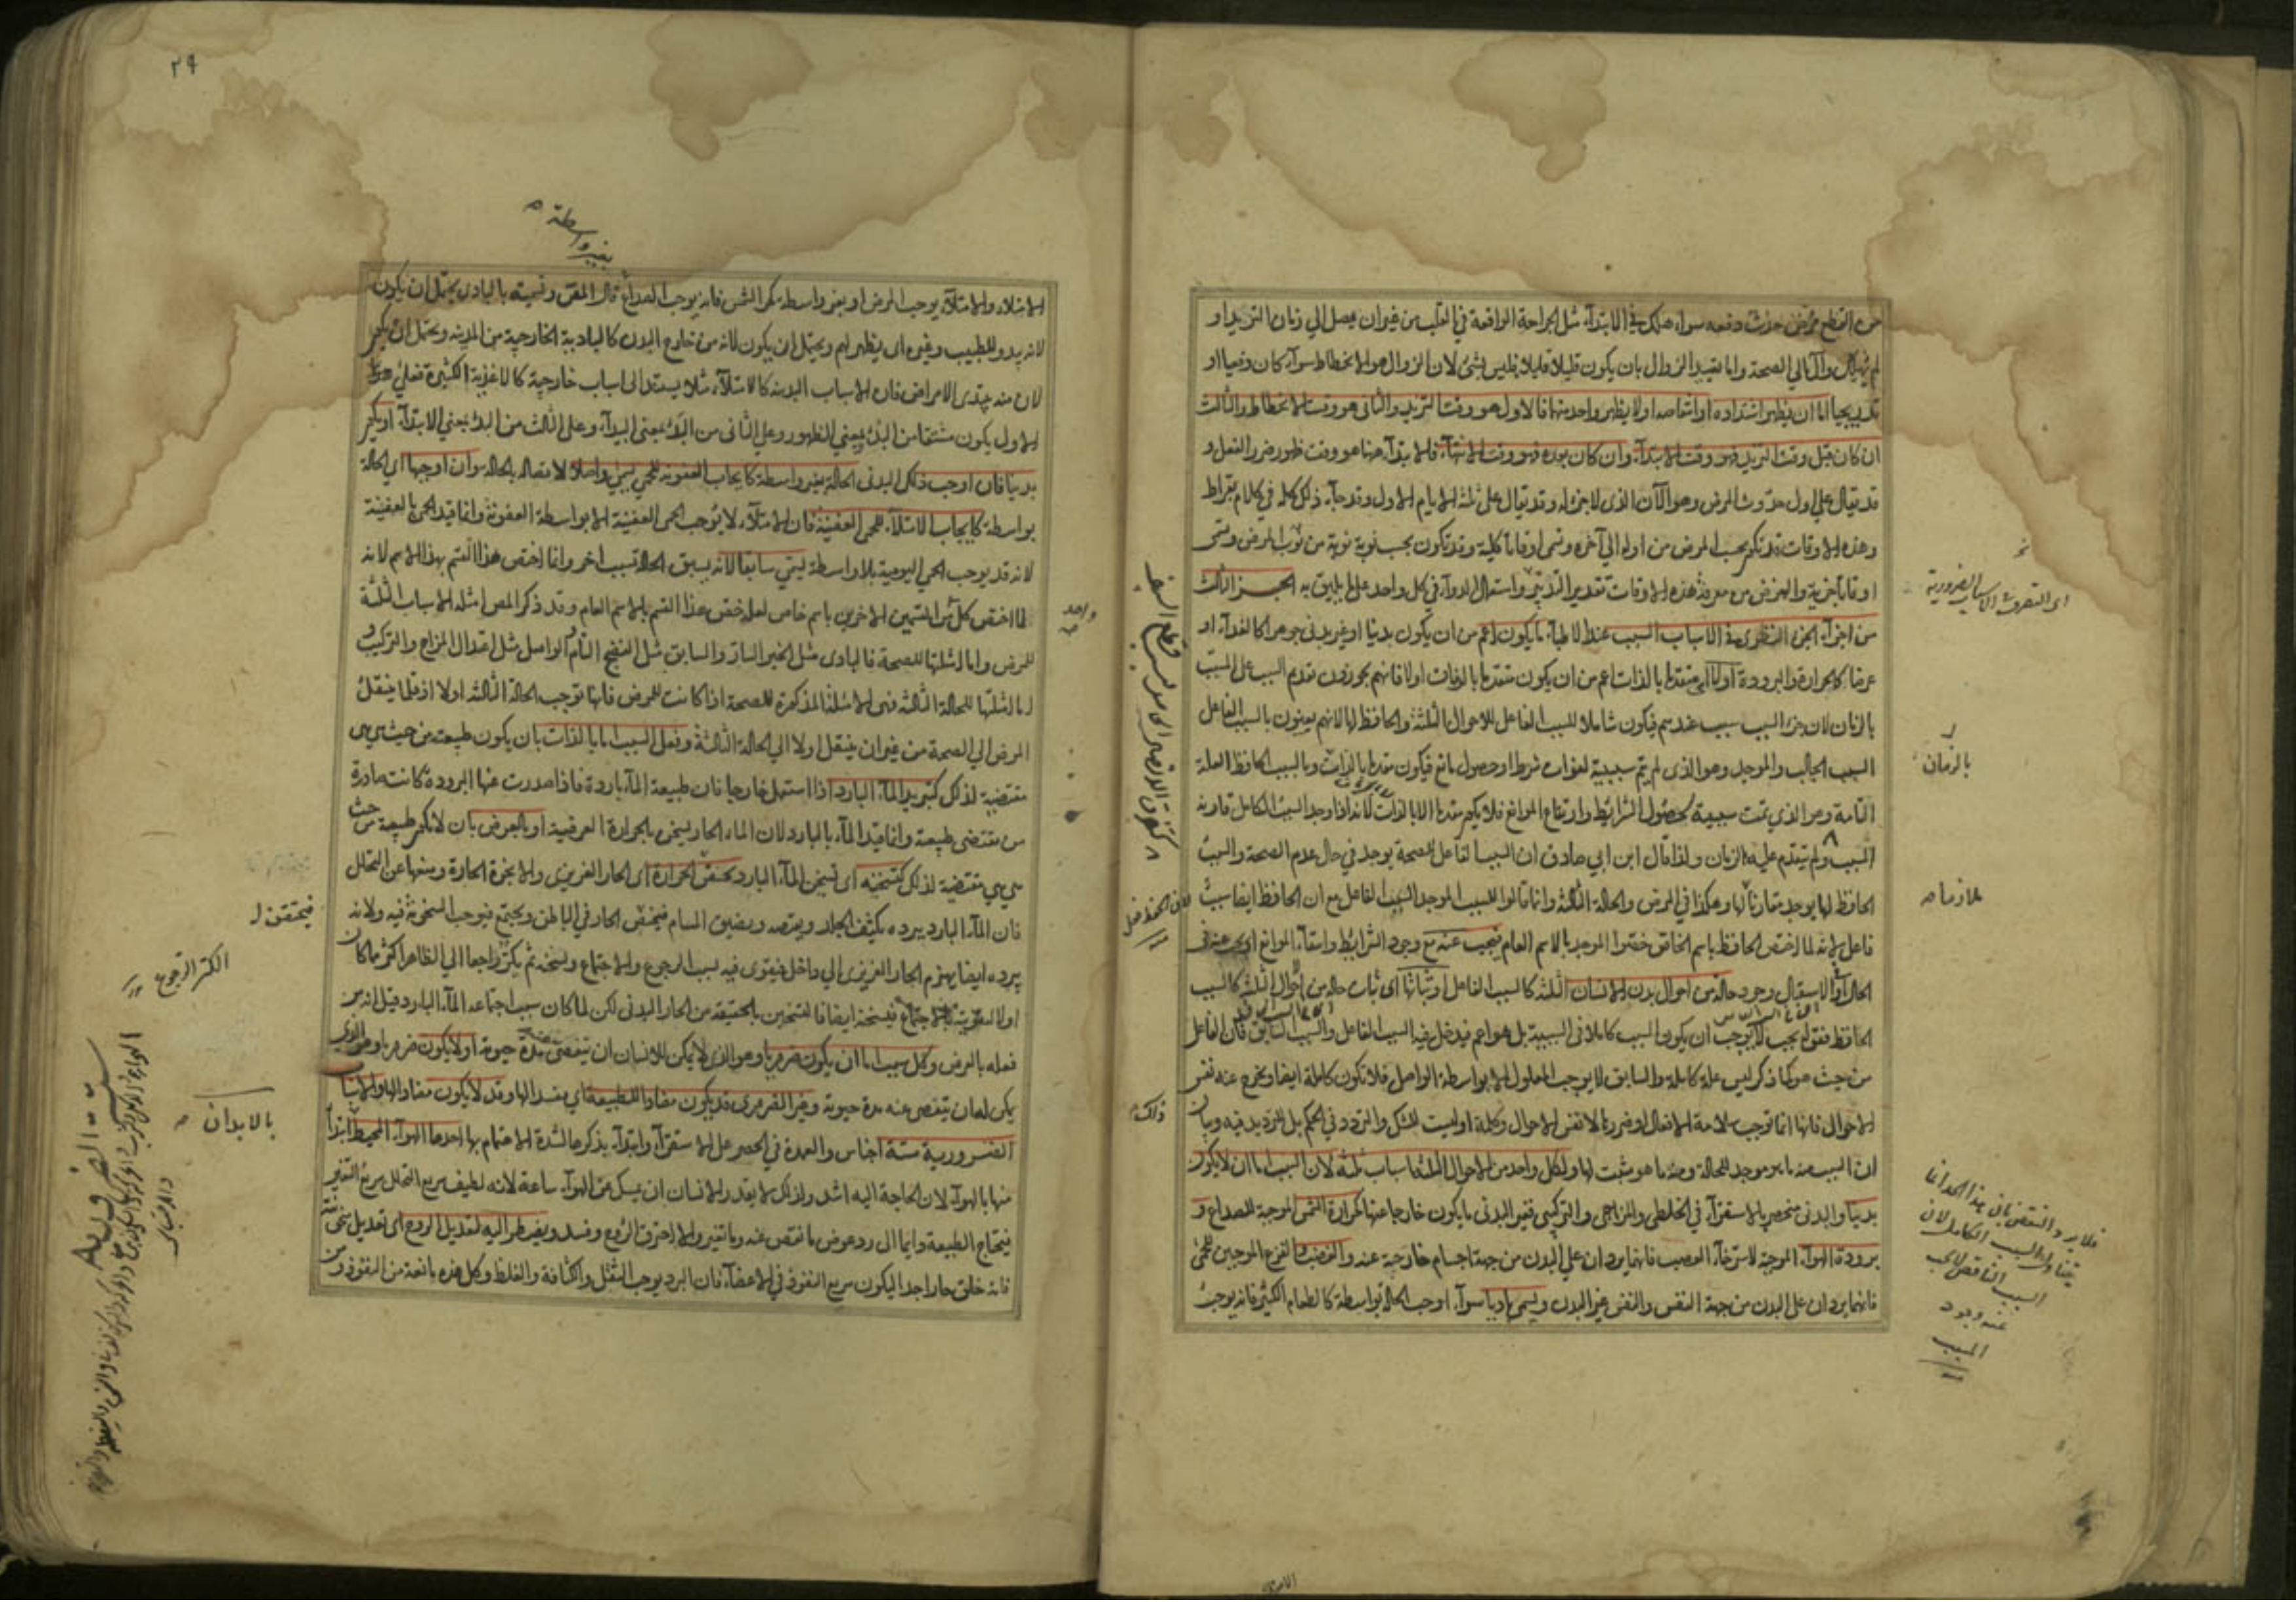 من القطع مرض حدث دفعه سواء هلك في الابتداء مثل الجراحة الواقعة في القلب من غير ان يصل الي زمان التزيد او
لم يهلك وآل الي الصحة واما تقييد الزوال بان يكون قليلا قليلا فليس بشئ لان الزوال هو الانحطاط سواء كان دفعيا او
تدريجيا اما ان يظهر اشتداده او انتقاصه اولا يظهر واحد منهما فالاول هو وقت التزيد والثاني هو وقت الانحطاط والثالث
ان كان قبل وقت التزيد فهو وقت الابتداء وان كان بعده فهو وقت الانتهاء فالابتداء هنا هو وقت ظهور ضرر الفعل و
قد يقال علي اول حدوث المرض وهو الآن الذى لا جزء له وقد يقال على ثلثة الايام الاول وقد جاء ذلك كله في كلام بقراط
وهذه الاوقات قد تكون بحسب المرض من اوله الي آخره وتسمى اوقاتا كلية وقد تكون بحسب نوبة نوبة من نوب المرض وتسمى
اوقاتا جزئية والغرض من معرفة هذه الاوقات تقدير التدبير واستعمال الدواء في كل واحد على ما يليق به الجزء الثالث
من اجزاء الجزء النظرى في الاسباب السبب عند الاطباء ما يكون اعم من ان يكون بدنيا او غير بدنى جوهرا كالغذاء او
عرضا كالحرارة والبرودة اولا اى متقدما بالذات اعم من ان يكون متقدما بالزمان اولا فانهم يجوزون تقدم السبب على المسبب
بالزمان لان جزء السبب سبب عندهم فيكون شاملا للسبب الفاعل للاحوال الثلثة والحافظ لها لانهم يعنون بالسبب الفاعل
السبب الجالب والموجد وهو الذى لم يتم سببيته لفوات شرط او حصول مانع فيكون متقدما بالزمان وبالسبب الحافظ العلة
التامة وهو الذي تمت سببيته بحصول الشرائط وارتفاع الموانع فلا يكون متقدما الا بالذات لانه اذا وجد السبب الكامل قارنه
المسبب ولم يتقدم عليه بالزمان ولذا قال ابن ابي صادق ان السبب الفاعل للصحة يوجد في حال عدم الصحة والسبب
الحافظ لها يوجد مقارنا لها وهكذا في المرض والحالة الثالثة وانما قالوا للسبب الموجد السبب الفاعل مع ان الحافظ ايضا سبب
فاعل لانه لما اختص الحافظ باسم الخاص خصوا الموجد بالاسم العام فيجب عنه مع وجود الشرائط وانتفاء الموانع
وجود حالة من احوال بدن الانسان الثلثة كالسبب الفاعل او ثباتها اى ثبات حالة من احوال الثلثة كالسبب
الحافظ فقوله يجب لا يوجب ان يكون السبب كاملا في السببية بل هو اعم فيدخل فيه السبب الفاعل والسبب السابق فان الفاعل
من حيث هو كما ذكر ليس علة كاملة والسابق لا يوجب المعلول الا بواسطة الواصل فلا تكون كاملة ايضا ويخرج عنه نفس
الاحوال فانها انما توجب سلامة الافعال او ضررها لا نفس الاحوال وكلمة او ليست للشك والتردد في الحكم بل للترديد فيه وبيان
ان السبب منه ما هو موجد للحالة ومنه ما هو مثبت لها ولكل واحد من الاحوال الثلثة اسباب ثلثة لان السبب اما ان لا يكون
بدنيا والبدنى منحصر بالاستقراء في الخلطى والمزاجى والتركيبى فغير البدنى ما يكون خارجا عنها كحرارة الشمس الموجبة للصداع و
برودة الهواء الموجبة لاسترخاء العصب فانهما يردان علي البدن من جهة اجسام خارجية عنه والغضب والفزع الموجبين للحمى
فانهما يردان على البدن من جهة النفس والنفس غير البدن ويسمى باديا سواء اوجب الحالة بواسطة كالطعام الكثير فانه يوجب
اى التصرف الاسباب الضرورية
بالزمان
ملازما صح
فلا يرد النقض بان هذا الحد انما
يتناول السبب الكامل لان
السبب الناقص لا يجب
عنه وجود
المسبب
ذلك
٢٩
بغير واسطة
الامتلاء والامتلاء يوجب المرض او بغير واسطة كحر الشمس فانه يوجب الصداع قال المص وتسميته بالبادى يحتمل ان يكون
لانه يبدو للطبيب وغيره اى يظهر لهم ويحتمل ان يكون لانه من خارج البدن كالبادية الخارجية من المدينة ويحتمل ان يكون
لان منه يبتدى الامراض فان الاسباب البدنية كالامتلاء مثلا يستند الى اسباب خارجية كالاغذية الكثيرة فعلى هذا
الاول يكون مشتقا من البدو بمعنى الظهور وعلى الثانى من البدو بمعنى البيداء وعلى الثالث من البدء بمعنى الابتداء او يكون
بدنيا فان اوجب ذلك البدنى الحالة بغير واسطة كايجاب العفونة للحمى يسمى واصلا لاتصاله بالحالة وان اوجبها اى الحالة
بواسطة كايجاب الامتلاء للحمى العفنية فان الامتلاء لا يوجب الحمى العفنية الا بواسطة العفونة وانما قيد الحمى بالعفنية
لانه قد يوجب الحمى اليومية بلا واسطة يسمى سابقا لانه يسبق الحالة بسبب اخر وانما اختص هذا القسم بهذا الاسم لانه
لما اختص كل من القسمين الاخرين باسم خاص لعله خص هذا القسم بالاسم العام وقد ذكر المص امثلة الاسباب الثلثة
للمرض واما امثلتها للصحة فالبادى مثل الخبر السار والسابق مثل النضج التام والواصل مثل اعتدال المزاج والتركيب و
اما امثلتها للحالة الثالثة فهى الامثلة المذكورة للصحة اذا كانت للمرض فانها توجب الحالة الثالثة اولا اذ قلما ينتقل
المرض الي الصحة من غير ان ينتقل اولا الي الحالة الثالثة وفعل السبب اما بالذات بان يكون طبيعته من حيث هى هى
مقتضية لذلك كتبريد الماء البارد اذا استعمل خارجا فان طبيعة الماء باردة فاذا صدرت عنها البرودة كانت صادرة
من مقتضى طبيعته وانما قيد الماء بالبارد لان الماء الحار يسخن بالحرارة العرضية او بالعرض بان لا تكون طبيعته من حيث
هى هى مقتضية لذلك كتسخينه اى تسخين الماء البارد بحقن الحرارة اى الحار الغريزى والابخرة الحارة ومنعها عن التحلل
فان الماء البارد ببرده يكثف الجلد ويعصره ويضيق المسام فيحتقن الحار في الباطن ويجتمع فيوجب السخونة فيه ولانه
ببرده ايضا يهزم الحار الغريزى الي داخل فيقوى فيه بسبب الرجوع والاجتماع ويسخنه ثم يكر راجعا الي الظاهر اكثر مما كان
اولا لتقويته بالاجتماع فيسخنه ايضا فالتسخين بالحقيقة من الحار البدنى لكن لما كان سبب اجتماعه الماء البارد قيل انه من
فعله بالعرض وكل سبب اما ان يكون ضروريا وهو الذى لا يمكن للانسان ان يتفصى عنه مدة حيوته اولا يكون ضروريا وهو الذى
يمكن له ان يتفصى عنه مدة حيوته وغير الضرورى قد يكون مضادا للطبيعة اى مفسدا لها وقد لا يكون مضادا لها والاسباب
الضرورية ستة اجناس والعمدة في الحصر على الاستقراء وابتداء بذكرها لشدة الاهتمام بها احدها الهواء المحيط ابتدأ
منها بالهواء لان الحاجة اليه اشد ولذلك لا يقدر الانسان ان يمسك عن الهواء ساعة لانه لطيف سريع التحلل سريع التغير
فيحتاج الطبيعة دايما الى رد عوض ما نقص عنه وما تغير والا احترق الروح وفسد ويضطر اليه لتعديل الروح اى تعديل سخونته
فانه خلق حارا جدا ليكون سريع النفوذ في الاعضاء فان البرد يوجب الثقل والكثافة والغلظ وكل هذه مانعة من النفوذ ومن
واحد
فيحتقن
الكر الرجوع
بالابدان
ستة الضرورية